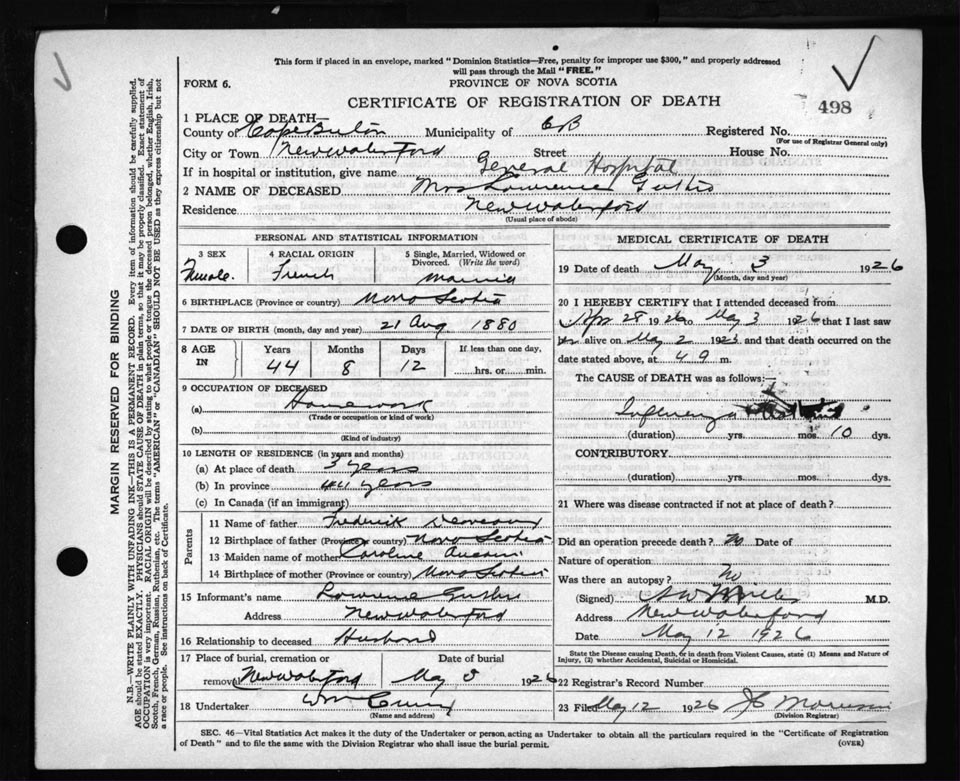 This form if placed in an envelope, marked "Dominion Statistics—Free, penalty for improper use $300," and properly addressed
will pass through the Mail "FREE."
FORM 6.
PROVINCE OF NOVA SCOTIA
CERTIFICATE OF REGISTRATION OF DEATH
498
1 PLACE OF DEATH—
County of Cape Breton Municipality of CB Registered No.
(For use of Registrar General only)
City or Town New Waterford Street House No.
If in hospital or institution, give name General Hospital
2 NAME OF DECEASED Mrs Lawrence
Residence New Waterford
(Usual place of abode)
PERSONAL AND STATISTICAL INFORMATION
3 SEX 4 RACIAL ORIGIN 5 Single, Married, Widowed or
Divorced. (Write the word)
Female. French married
6 BIRTHPLACE (Province or country) Nova Scotia
7 DATE OF BIRTH (month, day and year) 21 Aug. 1880
8 AGE IN Years Months Days If less than one day,
44 8 12 hrs. or min.
9 OCCUPATION OF DECEASED
(a) Homework
(Trade or occupation or kind of work)
(b)
(Kind of industry)
10 LENGTH OF RESIDENCE (in years and months)
(a) At place of death 3 years
(b) In province 44 years
(c) In Canada (if an immigrant)
Parents
11 Name of father Frederick
12 Birthplace of father (Province or country) Nova Scotia
13 Maiden name of mother Caroline
14 Birthplace of mother (Province or country) Nova Scotia
15 Informant's name Lawrence
Address New Waterford
16 Relationship to deceased Husband
17 Place of burial, cremation or Date of burial
removal New Waterford May 1926
18 Undertaker Wm
(Name and address)
MEDICAL CERTIFICATE OF DEATH
19 Date of death May 3 1926
(Month, day and year)
20 I HEREBY CERTIFY that I attended deceased from
Apr 28 1926 to May 3 1926 that I last saw
her alive on May 2 192 and that death occurred on the
date stated above, at 4 9 m.
The CAUSE of DEATH was as follows:—
Influenza
(duration) yrs. mos. 10 dys.
CONTRIBUTORY.
(duration) yrs. mos. dys.
21 Where was disease contracted if not at place of death?
Did an operation precede death? No Date of
Nature of operation
Was there an autopsy? No
(Signed) M.D.
Address New Waterford
Date May 12 1926
State the Disease causing Death, or in death from Violent Causes, state (1) Means and Nature of
Injury, (2) whether Accidental, Suicidal or Homicidal.
22 Registrar's Record Number
23 Filed May 12 1926 J
(Division Registrar)
SEC. 46—Vital Statistics Act makes it the duty of the Undertaker or person acting as Undertaker to obtain all the particulars required in the "Certificate of Registration
of Death" and to file the same with the Division Registrar who shall issue the burial permit.
(OVER)
MARGIN RESERVED FOR BINDING
N.B.—WRITE PLAINLY WITH UNFADING INK—THIS IS A PERMANENT RECORD. Every item of information should be carefully supplied.
AGE should be stated EXACTLY. PHYSICIANS should STATE CAUSE OF DEATH in plain terms, so that it may be properly classified. Exact statement of
OCCUPATION is very important. RACIAL ORIGIN will be described by stating to what people or tongue the deceased person belonged, whether English, Irish,
Scotch, French, German, Russian, Ruthenian, etc. The terms "AMERICAN" or "CANADIAN" SHOULD NOT BE USED as they express citizenship but not
a race or people. See instructions on back of Certificate.